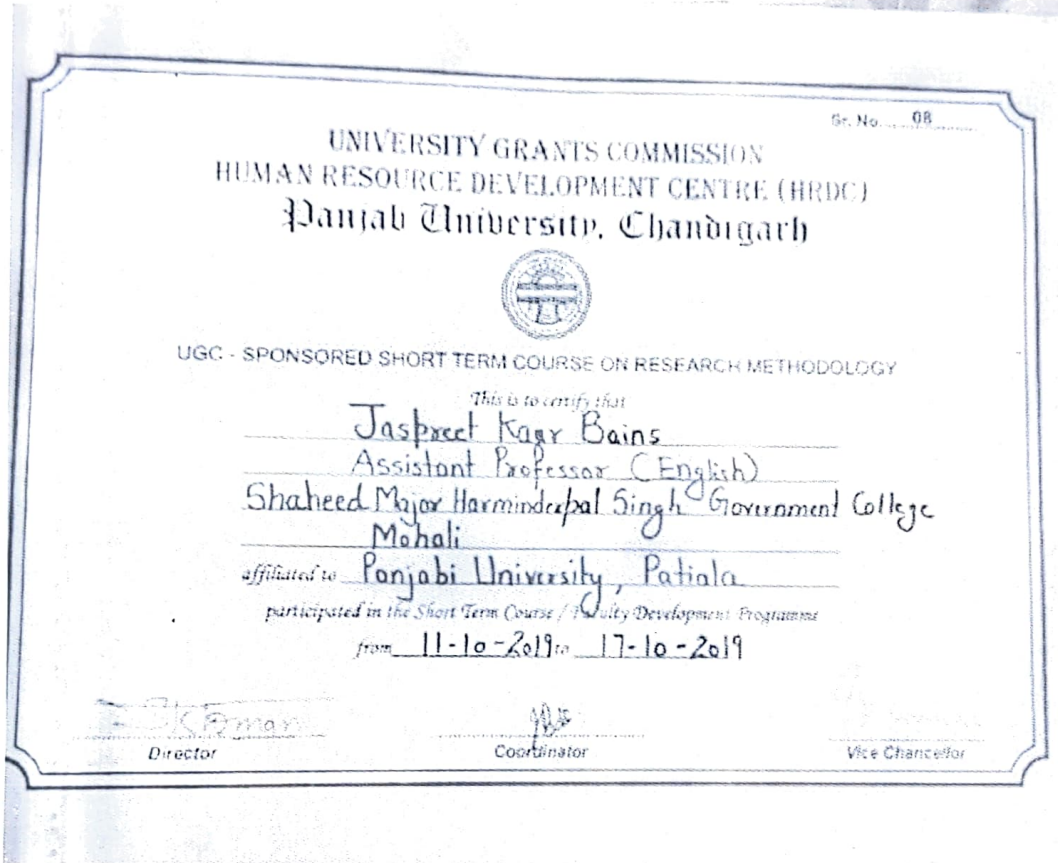 Sr. No. 08
UNIVERSITY GRANTS COMMISSION
HUMAN RESOURCE DEVELOPMENT CENTRE (HRDC)
Panjab University, Chandigarh
UGC - SPONSORED SHORT TERM COURSE ON RESEARCH METHODOLOGY
This is to certify that
Jaspreet Kaur Bains
Assistant Professor (English)
Shaheed Major Harminderpal Singh Government College
Mohali
affiliated to Panjabi University, Patiala
participated in the Short Term Course / Faculty Development Programme
from 11-10-2019 to 17-10-2019
Director
Coordinator
Vice Chancellor